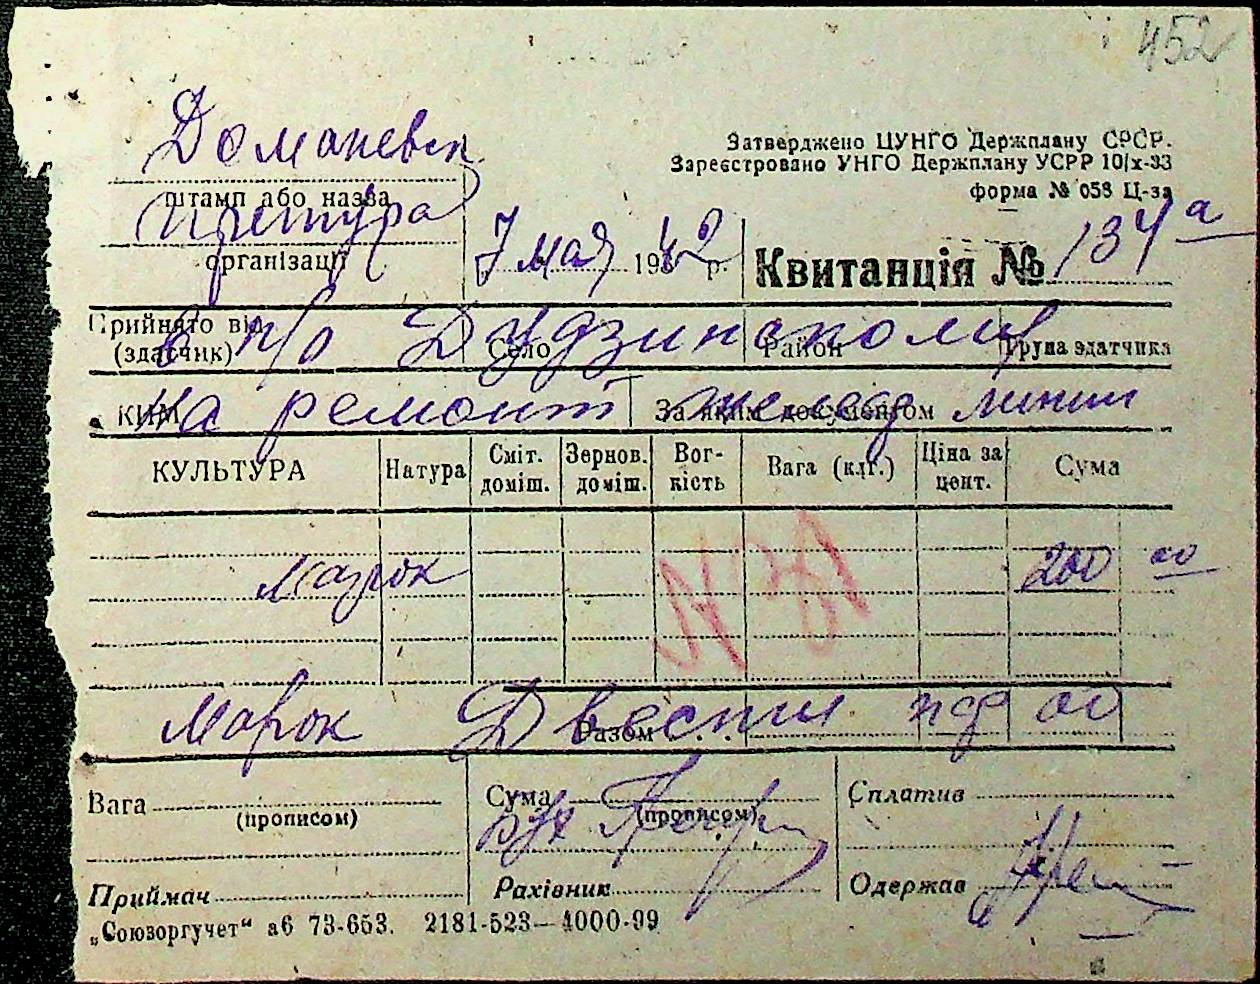 452
Доманевск.
Затверджено ЦУНГО Держплану СРСР.
Зареєстровано УНГО Держплану УСРР 10/х-33
форма № 053 Ц-за
штамп або назва
Претура
організації
7 мая 1942 р.
Квитанція № 134а
Прийнято від
(здатчик)
Село
Район
Група здатчика
В п/о Дудзинскому
КИМ
За яким документом
На ремонт линии
КУЛЬТУРА
Натура
Сміт. доміш.
Зернов. доміш.
Вог-кість
Вага (клг.)
Ціна за цент.
Сума
Марок 200 00
Марок Двести пф 00
Разом
Вага
(прописом)
Сума
(прописом)
Сплатив
Бух
Приймач
Рахівник
Одержав
„Союзоргучет“ аб 73-653. 2181-523—4000-99